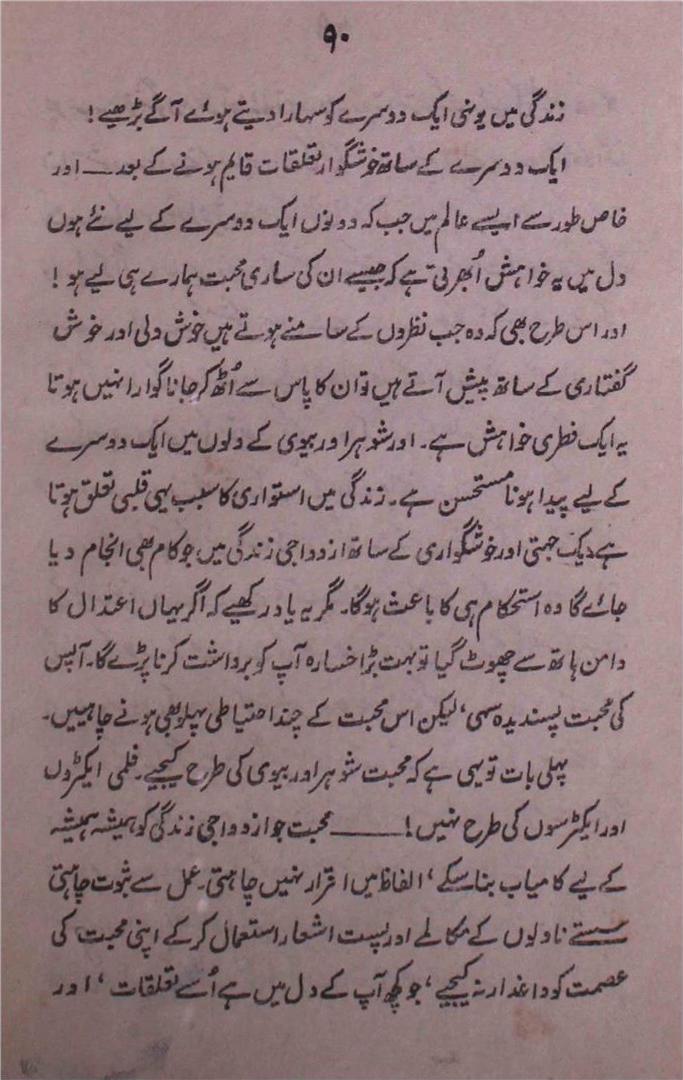 ۹۰
زندگی میں یونہی ایک دوسرے کو سہارا دیتے ہوئے آگے بڑھیے!
ایک دوسرے کے ساتھ خوشگوار تعلقات قایم ہونے کے بعد ــــ اور
خاص طور سے ایسے عالم میں جب کہ دونوں ایک دوسرے کے لیے نئے ہوں
دل میں یہ خواہش اُبھرتی ہے کہ جیسے ان کی ساری محبت ہمارے ہی لیے ہو!
اور اس طرح بھی کہ وہ جب نظروں کے سامنے ہوتے ہیں خوش دلی اور خوش
گفتاری کے ساتھ پیش آتے ہیں تو ان کا پاس سے اُٹھ کر جانا گوارا نہیں ہوتا
یہ ایک فطری خواہش ہے۔ اور شوہر اور بیوی کے دلوں میں ایک دوسرے
کے لیے پیدا ہونا مستحسن ہے۔ زندگی میں استواری کا سبب یہی قلبی تعلق ہوتا
ہے یک جہتی اور خوشگواری کے ساتھ ازدواجی زندگی میں جو کام بھی انجام دیا
جائے گا وہ استحکام ہی کا باعث ہوگا۔ مگر یہ یاد رکھیے کہ اگر یہاں اعتدال کا
دامن ہاتھ سے چھوٹ گیا تو بہت بڑا خسارہ آپ کو برداشت کرنا پڑے گا۔ آپس
کی محبت پسندیدہ سہی، لیکن اس محبت کے چند احتیاطی پہلو بھی ہونے چاہییں۔
پہلی بات تو یہی ہے کہ محبت شوہر اور بیوی کی طرح کیجیے۔ فلمی ایکٹروں
اور ایکٹرسوں کی طرح نہیں! ــــــــ محبت جو ازدواجی زندگی کو ہمیشہ ہمیشہ
کے لیے کامیاب بنا سکے، الفاظ میں اقرار نہیں چاہتی۔ عمل سے ثبوت چاہتی
سستے ناولوں کے مکالمے اور پست اشعار استعمال کرکے اپنی محبت کی
عصمت کو داغدار نہ کیجیے، جو کچھ آپ کے دل میں ہے اُسے تعلقات، اور